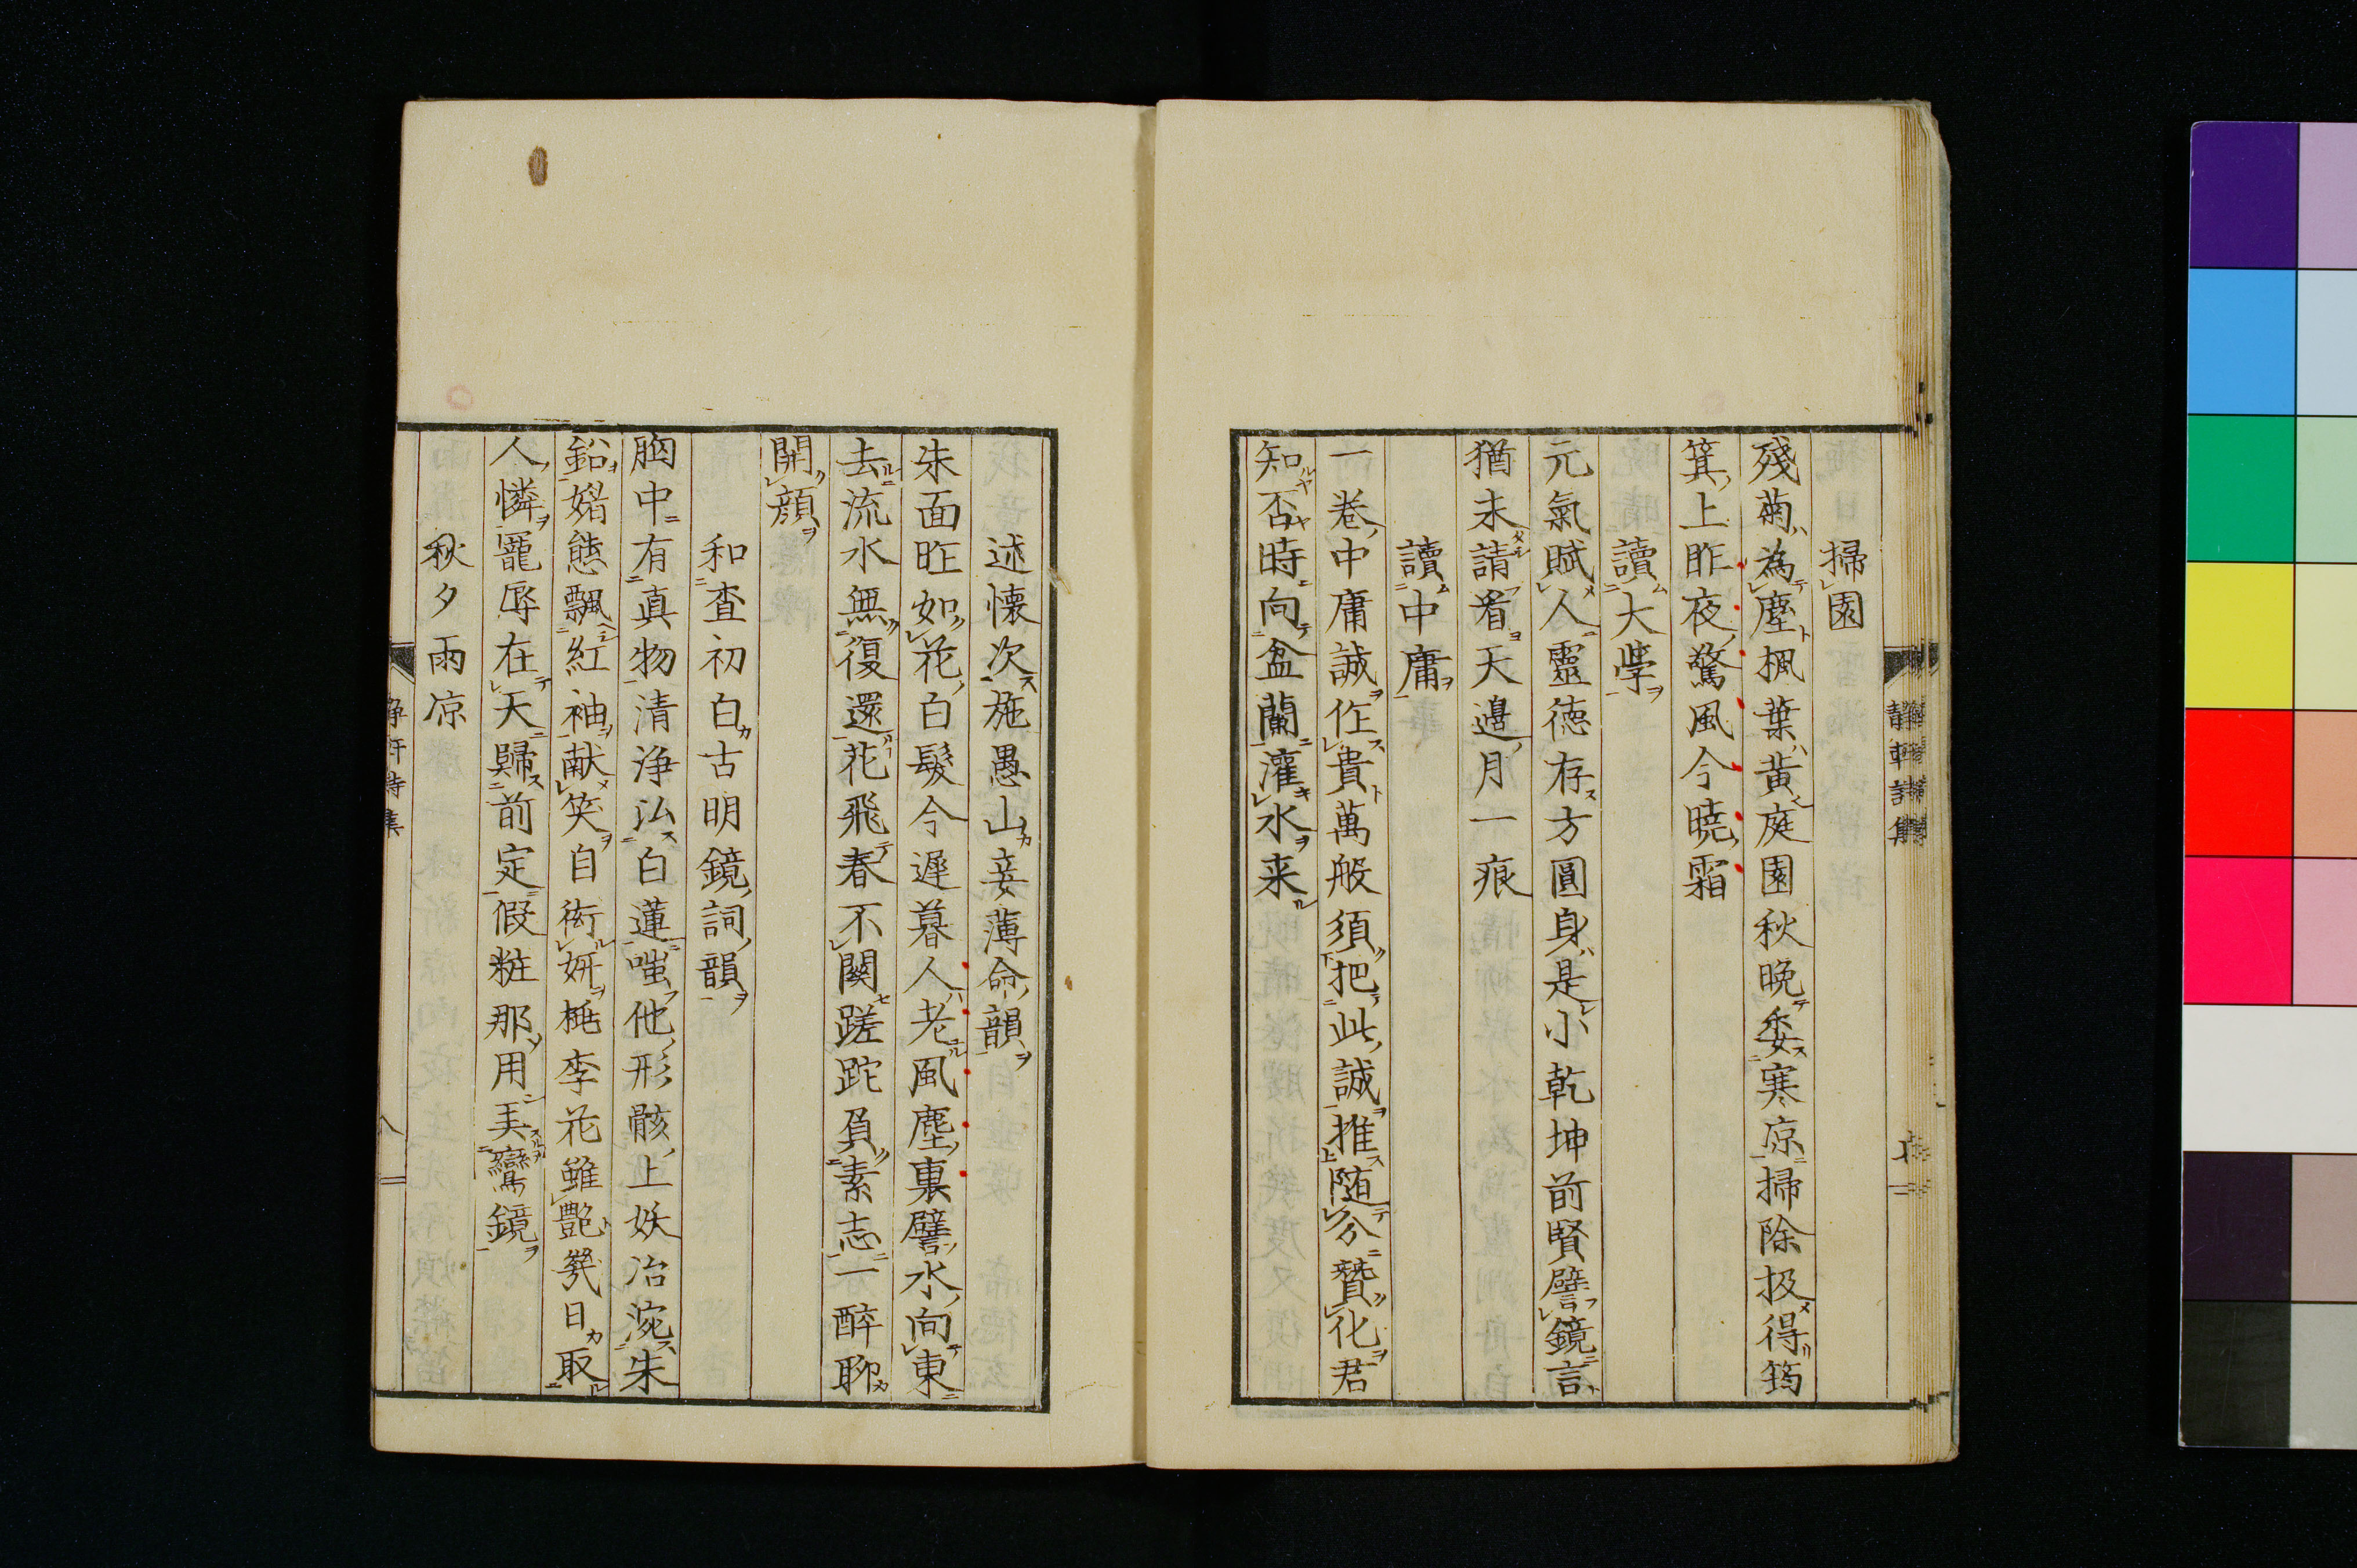 掃園
殘菊為塵楓葉黄庭園秋晩委寒凉掃除扱得筠
箕上昨夜驚風今曉霜
讀大學
元氣賦人靈德存方圓身是小乾坤前賢譬鏡言
猶未請看天邉月一痕
讀中庸
一卷中庸誠作貴萬般須把此誠推随分賛化君
知否時向盆蘭灌水来
述懐次施愚山妾薄命韻
朱面昨如花白髮今遲暮人老風塵裏譬水向東
去流水無復還花飛春不關蹉跎負素志一醉聊
開顔
和査初白古明鏡詞韻
胸中有真物清浄泌白蓮嗤他形骸上妖冶涴朱
鉛媚態飄紅袖献笑自衒妍桃李花雖艶幾日取
人憐寵辱在天歸前定假粧那用美鸞鏡
秋夕雨凉
静軒詩集